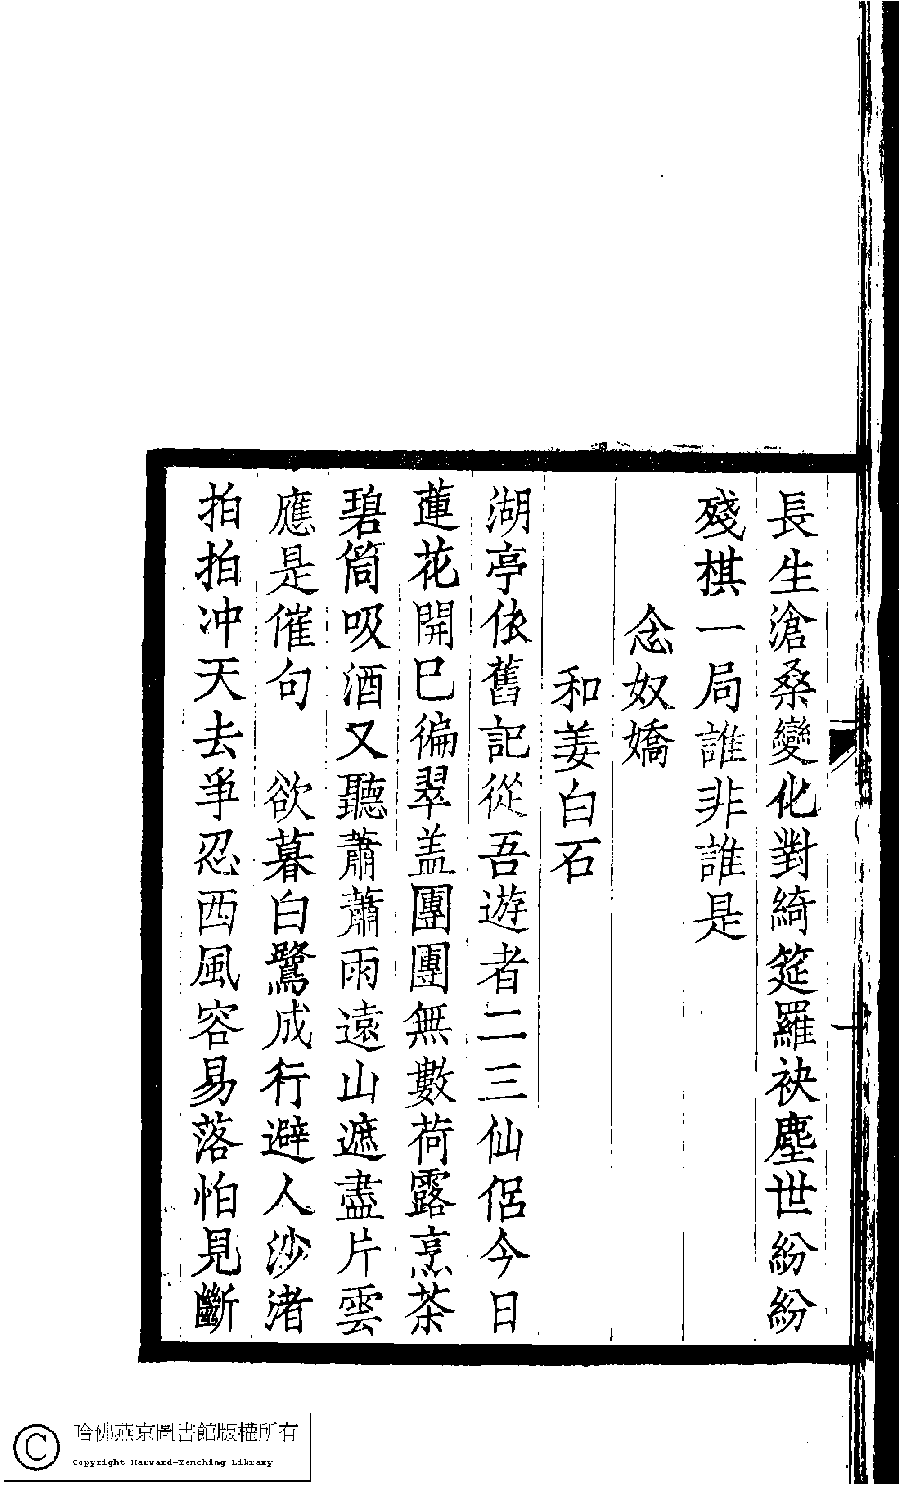 長生滄桑變化對綺筵羅袂塵世紛紛
殘棋一局誰非誰是
念奴嬌
和姜白石
湖亭依舊記從吾遊者二三仙侶今日
蓮花開巳徧翠盖團團無數荷露烹茶
碧筒吸酒又聽蕭蕭雨遠山遮盡片雲
應是催句　欲暮白鷺成行避人沙渚
拍拍冲天去爭忍西風容易落怕見斷
哈佛燕京圖書館版權所有
Copyright Harvard-Yenching Library